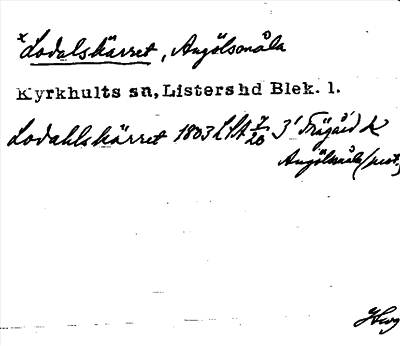 x Lodalskärret, Angölsmåla
Kyrkhults sn, Listers hd Blek. l.
Lodahlskärret 1803 LSA 7/20 3' Frägård K
Angölsmåla